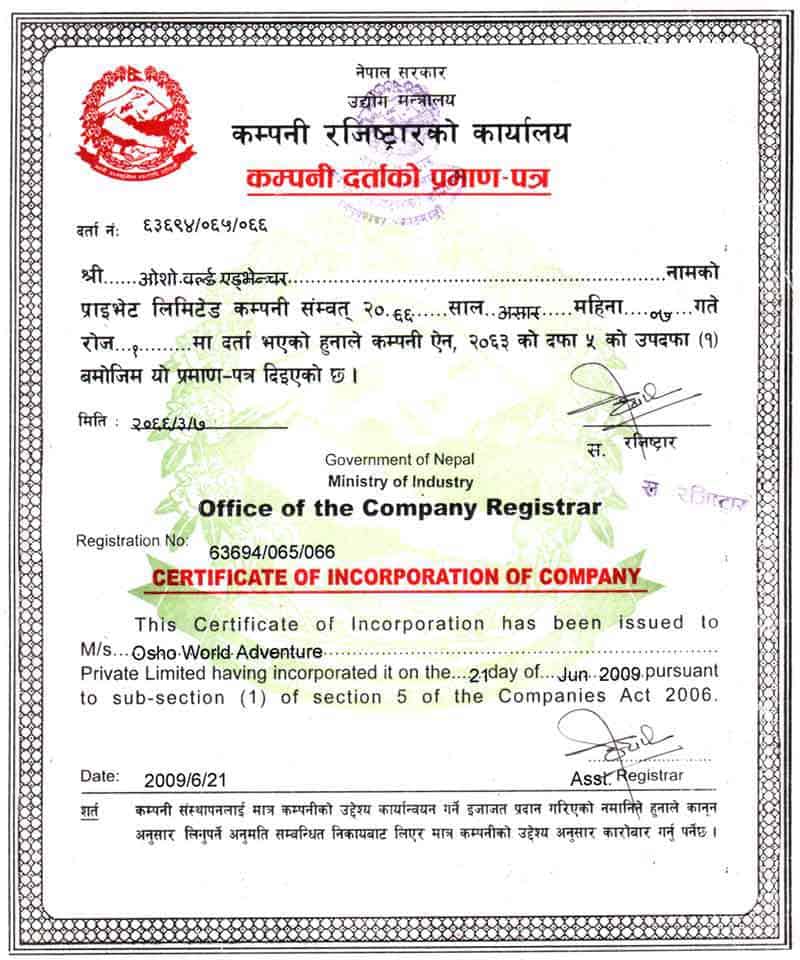 नेपाल सरकार
उद्योग मन्त्रालय
कम्पनी रजिष्ट्रारको कार्यालय
कम्पनी दर्ताको प्रमाण-पत्र
दर्ता नं: ६३६९४/०६५/०६६
श्री......ओशो वर्ल्ड एड्भेन्चर......नामको
प्राइभेट लिमिटेड कम्पनी संम्वत् २०.६६......साल..असार......महिना....०७..गते
रोज...१.........मा दर्ता भएको हुनाले कम्पनी ऐन, २०६३ को दफा ५ को उपदफा (१)
बमोजिम यो प्रमाण-पत्र दिइएको छ ।
मिति : २०६६/३/७
स. रजिष्ट्रार
स रजिष्टार
Government of Nepal
Ministry of Industry
Office of the Company Registrar
Registration No: 63694/065/066
CERTIFICATE OF INCORPORATION OF COMPANY
This Certificate of Incorporation has been issued to
M/s...Osho World Adventure......
Private Limited having incorporated it on the...21day of...Jun..2009.pursuant
to sub-section (1) of section 5 of the Companies Act 2006.
Date: 2009/6/21
Asst. Registrar
शर्त कम्पनी संस्थापनलाई मात्र कम्पनीको उद्देश्य कार्यान्वयन गर्ने इजाजत प्रदान गरिएको नमानिने हुनाले कानून
अनुसार लिनुपर्ने अनुमति सम्बन्धित निकायबाट लिएर मात्र कम्पनीको उद्देश्य अनुसार कारोबार गर्नु पर्नेछ ।